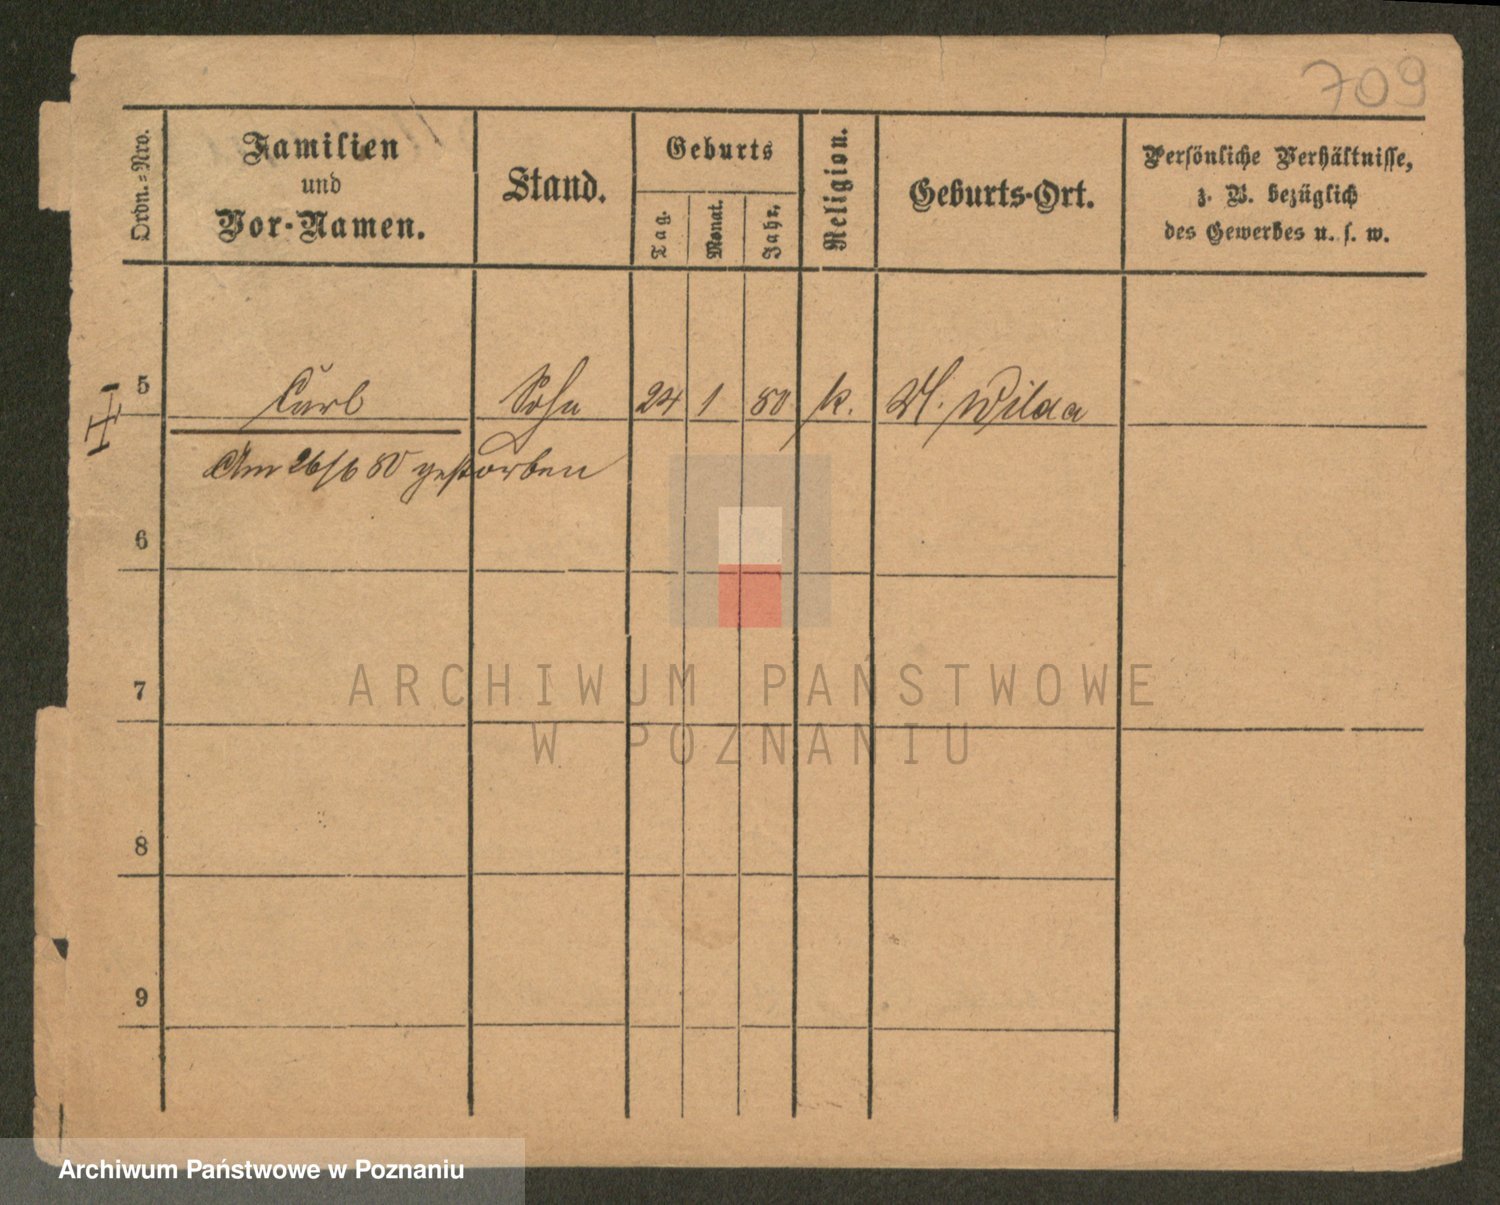 709
Ordn.-Nro.
Familien
und
Vor-Namen.
Stand.
Geburts
Tag.
Monat.
Jahr.
Religion.
Geburts-Ort.
Persönliche Verhältnisse,
z. B. bezüglich
des Gewerbes u. s. w.
5 Carl Sohn 24 1 80 k. Wilda
Am 26/6 80 gestorben
6
7
8
9
ARCHIWUM PAŃSTWOWE
W POZNANIU
Archiwum Państwowe w Poznaniu